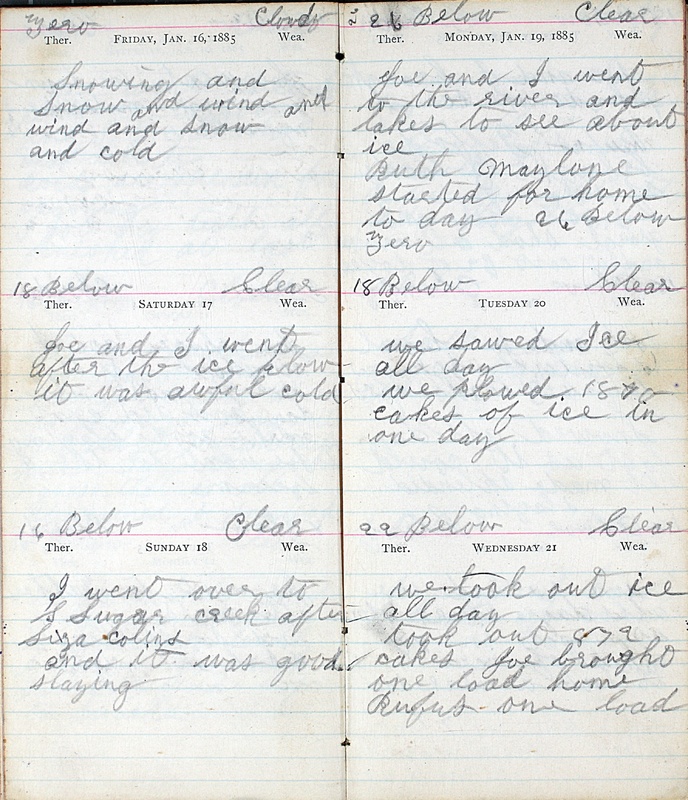 Zero Cloudy
Ther. FRIDAY, JAN. 16, 1885 Wea.
Snowing and
Snow and wind and
wind and snow
and cold
18 Below Clear
Ther. SATURDAY 17 Wea.
Joe and I went
after the ice plow
it was awful cold
16 Below Clear
Ther. SUNDAY 18 Wea.
I went over to
Sugar creek after
colins
and it was good
slaying
26 Below Clear
Ther. MONDAY, JAN. 19, 1885 Wea.
Joe and I went
to the river and
lakes to see about
ice
Ruth Maylone
started for home
to day 26 Below
Zero
18 Below Clear
Ther. TUESDAY 20 Wea.
we sawed Ice
all day
we plowed
cakes of ice in
one day
22 Below Clear
Ther. WEDNESDAY 21 Wea.
we took out ice
all day
took out
cakes Joe brought
one load home
Rufus one load